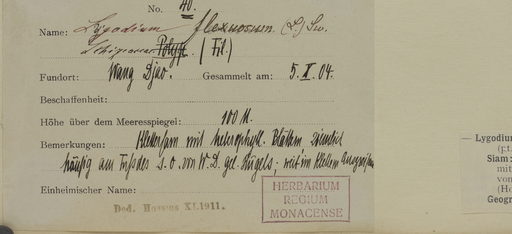 No. 40.
Name: Lygodium flexuosum (L.) Sw.
Schizaeaceae Polyp. (Fil.)
Fundort: Wang Djao. Gesammelt am: 5. X. 04.
Beschaffenheit:
Höhe über dem Meeresspiegel: 100 M.
Bemerkungen: Kletterfarn mit heterophyll. Blättern, ziemlich
häufig am Fuße des s. o. von W. D. gel. Hügels; weit im
Einheimischer Name:
Ded. Hosseus XI.1911.
HERBARIUM
REGIUM
MONACENSE
— Lygodium
(p.t.
Siam:
mit
von
(Ho
Geogr